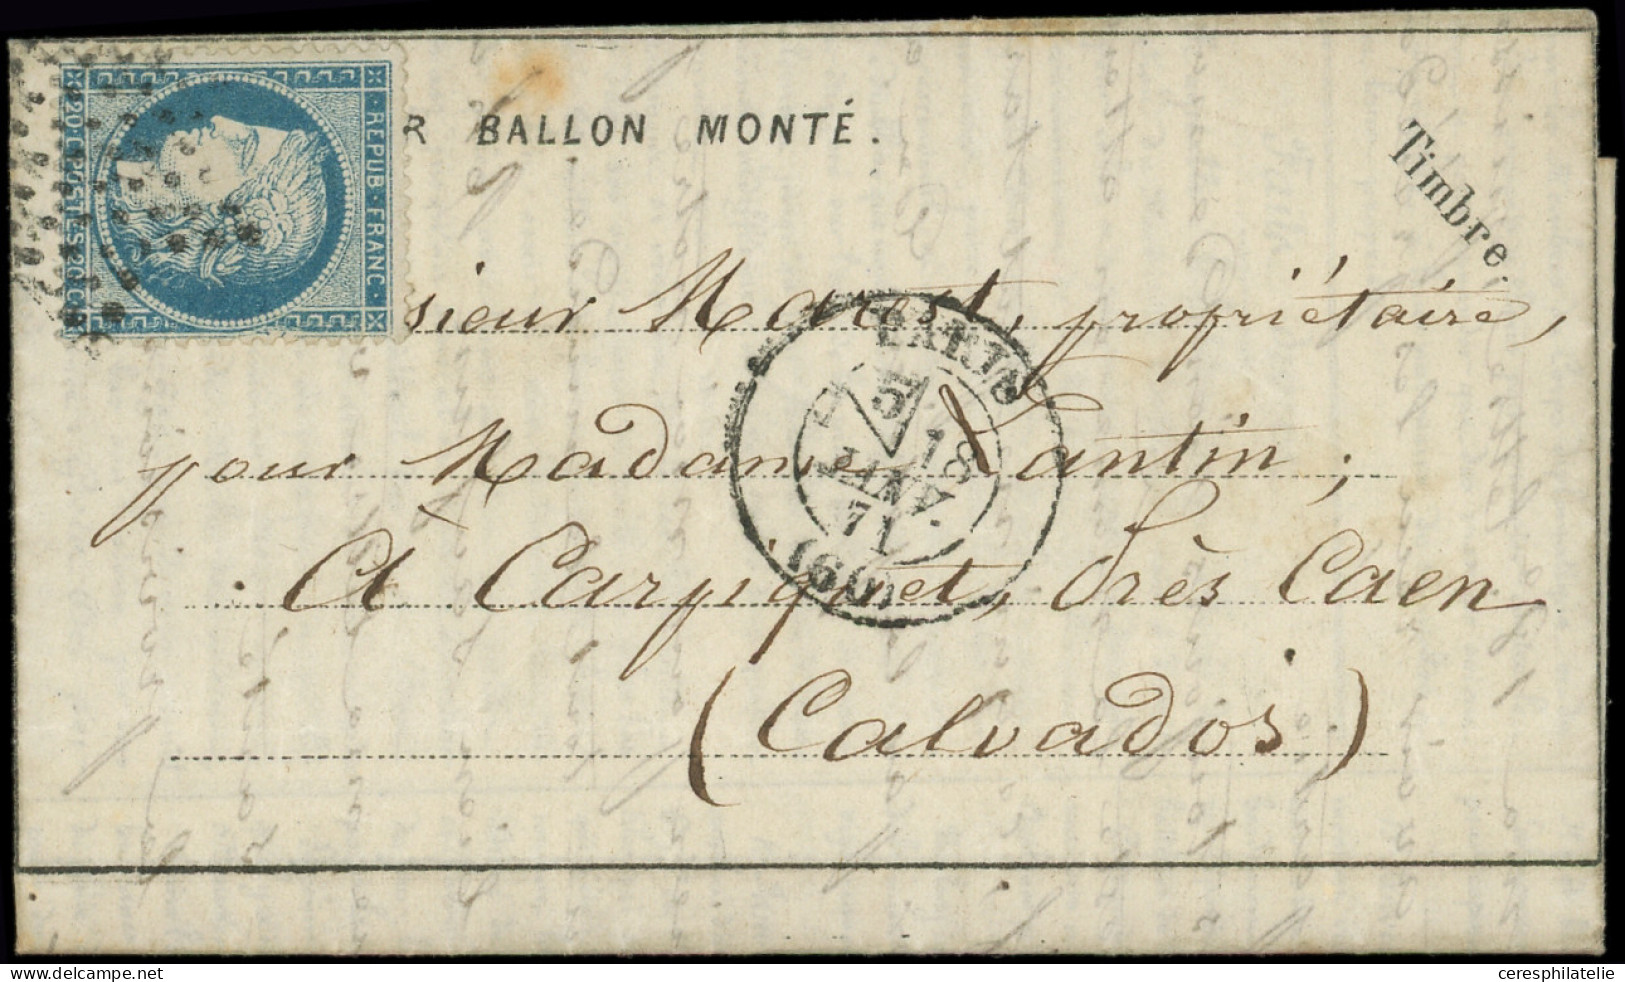 R BALLON MONTÉ.
Timbre.
REPUB. FRANC.
20 C. POSTES 20 C.
sieur Marest, propriétaire,
pour Madame Lantin;
à Carpiquet, Près Caen
(Calvados)
PARIS
5E
18
JANV.
71
(60)
ceresphilatelie